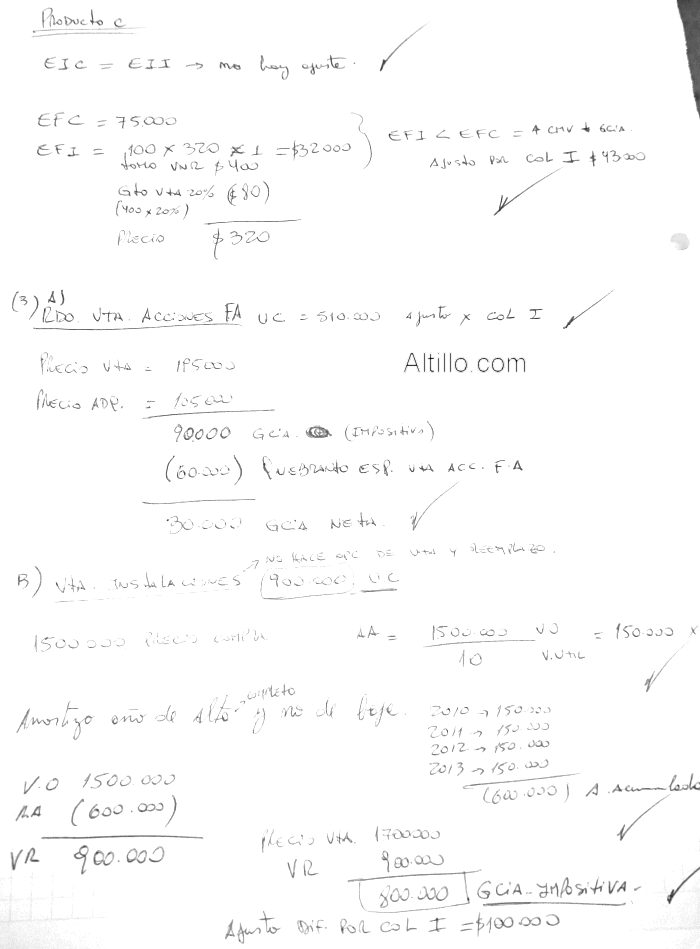 Producto C
EIC = EII → no hay ajuste.
EFC = 75.000
EFI = 100 x 320 x 1 = $32000
tomo VNR $400
Gto Vta 20% ($80)
(400 x 20%)
Precio $320
EFI < EFC = ↑ CMV ↓ GCIA.
Ajusto por Col I $43000
(3) A)
RDO. VTA. ACCIONES FA UC = 510.000 ajusto x Col I
Precio Vta = 195000
Altillo.com
Precio ADQ. = 105000
90000 GCIA. (Impositiva)
(60.000) Quebranto ESP. Vta ACC. F.A
30.000 GCIA Neta.
→ NO HACE OPC DE Vta Y REEMPLAZO.
B) Vta. Instalaciones (900.000) UC
1500000 Precio compra
AA = 1500.000 VO = 150.000 x
10 V.Util
completo
Amortizo año de Alta y no de baja.
2010 → 150.000
2011 → 150.000
2012 → 150.000
2013 → 150.000
(600.000) A. Acumulada
V.O 1500.000
AA (600.000)
VR 900.000
Precio Vta. 1700000
VR 900.000
800.000 GCIA Impositiva
Ajusto Dif. por Col I = $100.000